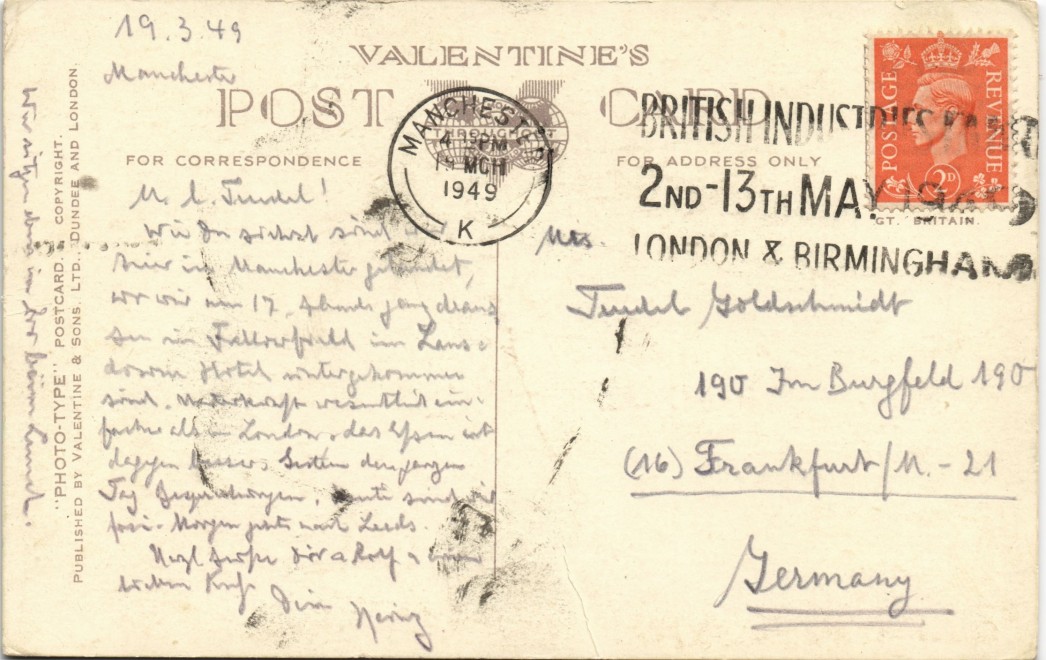 19.3.49
Manchester
VALENTINE'S
POST CARD
FOR CORRESPONDENCE
FOR ADDRESS ONLY
THROUGHOUT
MANCHESTER
PM
MCH
1949
K
BRITISH INDUSTRIES
2ND-13TH MAY
LONDON & BIRMINGHAM
POSTAGE
REVENUE
2D
GT. BRITAIN.
M. l. Trudel!
Wie Du siehst sind
hier in Manchester gelandet,
wo wir am 17. Abends ganz draus
sen in Fallowfield im Lans-
downe Hotel untergekommen
sind. wesentlich ein-
facher als in London, das Essen ist
dagegen besser. Gestern den ganzen
Tag Besprechungen, heute sind wir
frei. Morgen gehts nach Leeds.
Herzl Grüße Dir a Rolf
lieben Kuß Dein Heinz
Wir sitzen hier in der beim Lunch.
"PHOTO-TYPE" POSTCARD. COPYRIGHT.
PUBLISHED BY VALENTINE & SONS. LTD., DUNDEE AND LONDON.
Mrs.
Trudel Goldschmidt
190 Im Burgfeld 190
(16) Frankfurt/M.-21
Germany